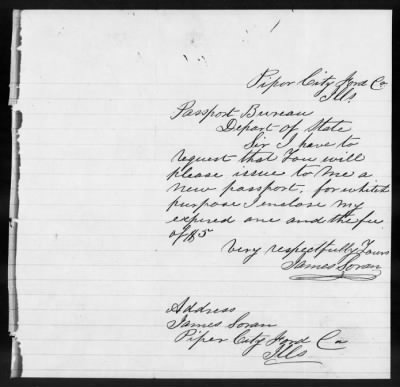 Piper City Ford Co
Ills
Passport Bureau
Depart of State
Sir I have to
request that You will
please issue to me a
new passport, for which
purpose I enclose my
expired one and the fee
of $5
Very respectfully Yours
James Soran
Address
James Soran
Piper City Ford Co
Ills